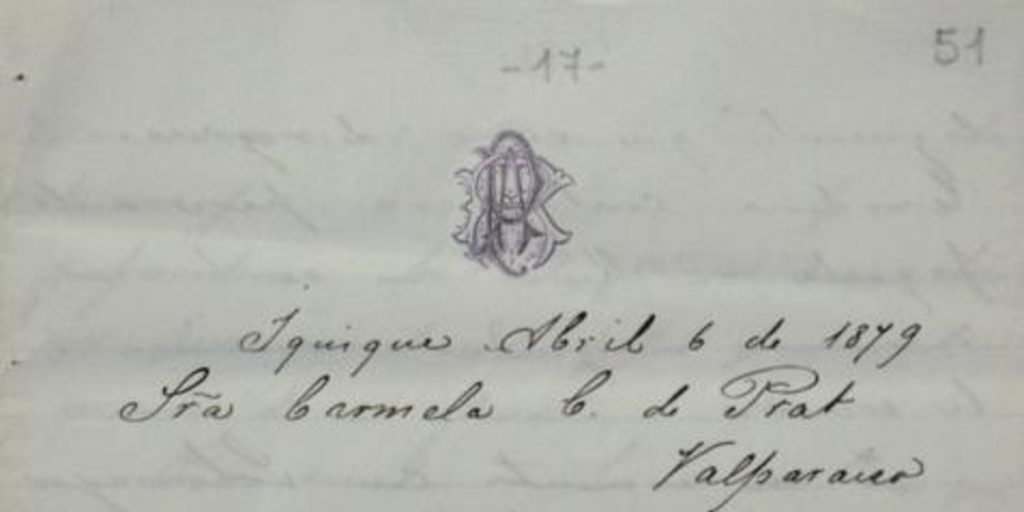 51
-17-
Iquique Abril 6 de 1879
Sr̃a Carmela C. de Prat
Valparaiso